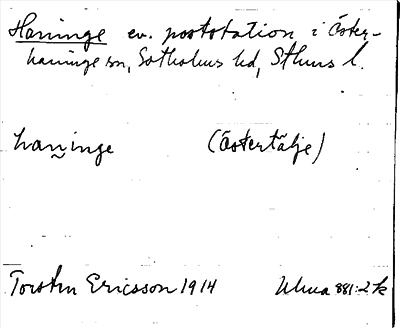 Haninge ev. poststation i Öster-
haninge sn, Sotholms hd, Sthms l.
haninge (Östertälje)
Torsten Ericsson 1914 Ulma 881:2 k